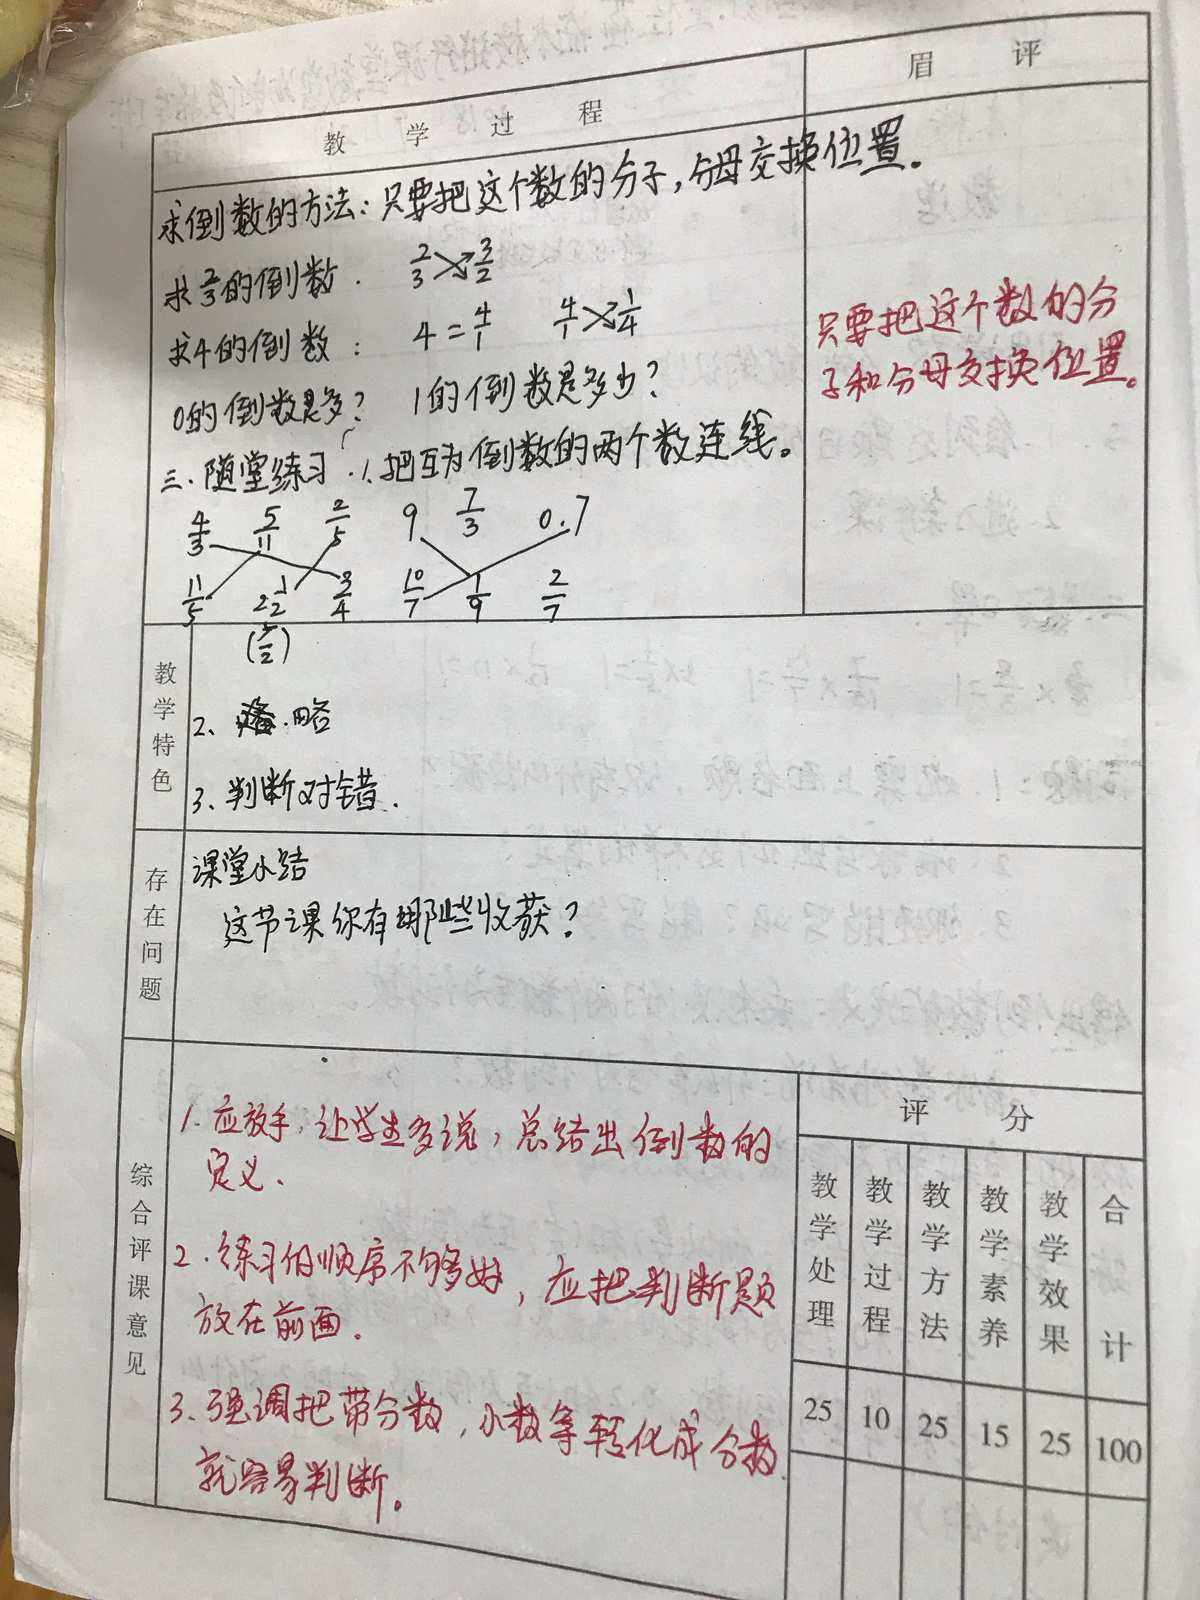 教学过程
眉评
求倒数的方法：只要把这个数的分子，分母交换位置。
求2/3的倒数． 2/3 3/2
求4的倒数： 4=4/1 4/1 1/4
0的倒数是多？ 1的倒数是多少？
三．随堂练习．1．把互为倒数的两个数连线。
4/3 5/11 2/5 9 7/3 0.7
11/5 2 1/2 3/4 10/7 1/9 2/7
(5/2)
只要把这个数的分
子和分母交换位置。
教学特色
2、略
3、判断对错．
存在问题
课堂小结
这节课你有哪些收获？
综合评课意见
1．应放手，让学生多说，总结出倒数的
定义．
2．练习的顺序不够好，应把判断题
放在前面．
3．强调把带分数，小数等转化成分数
就容易判断。
评分
教学处理 教学过程 教学方法 教学素养 教学效果 合计
25 10 25 15 25 100